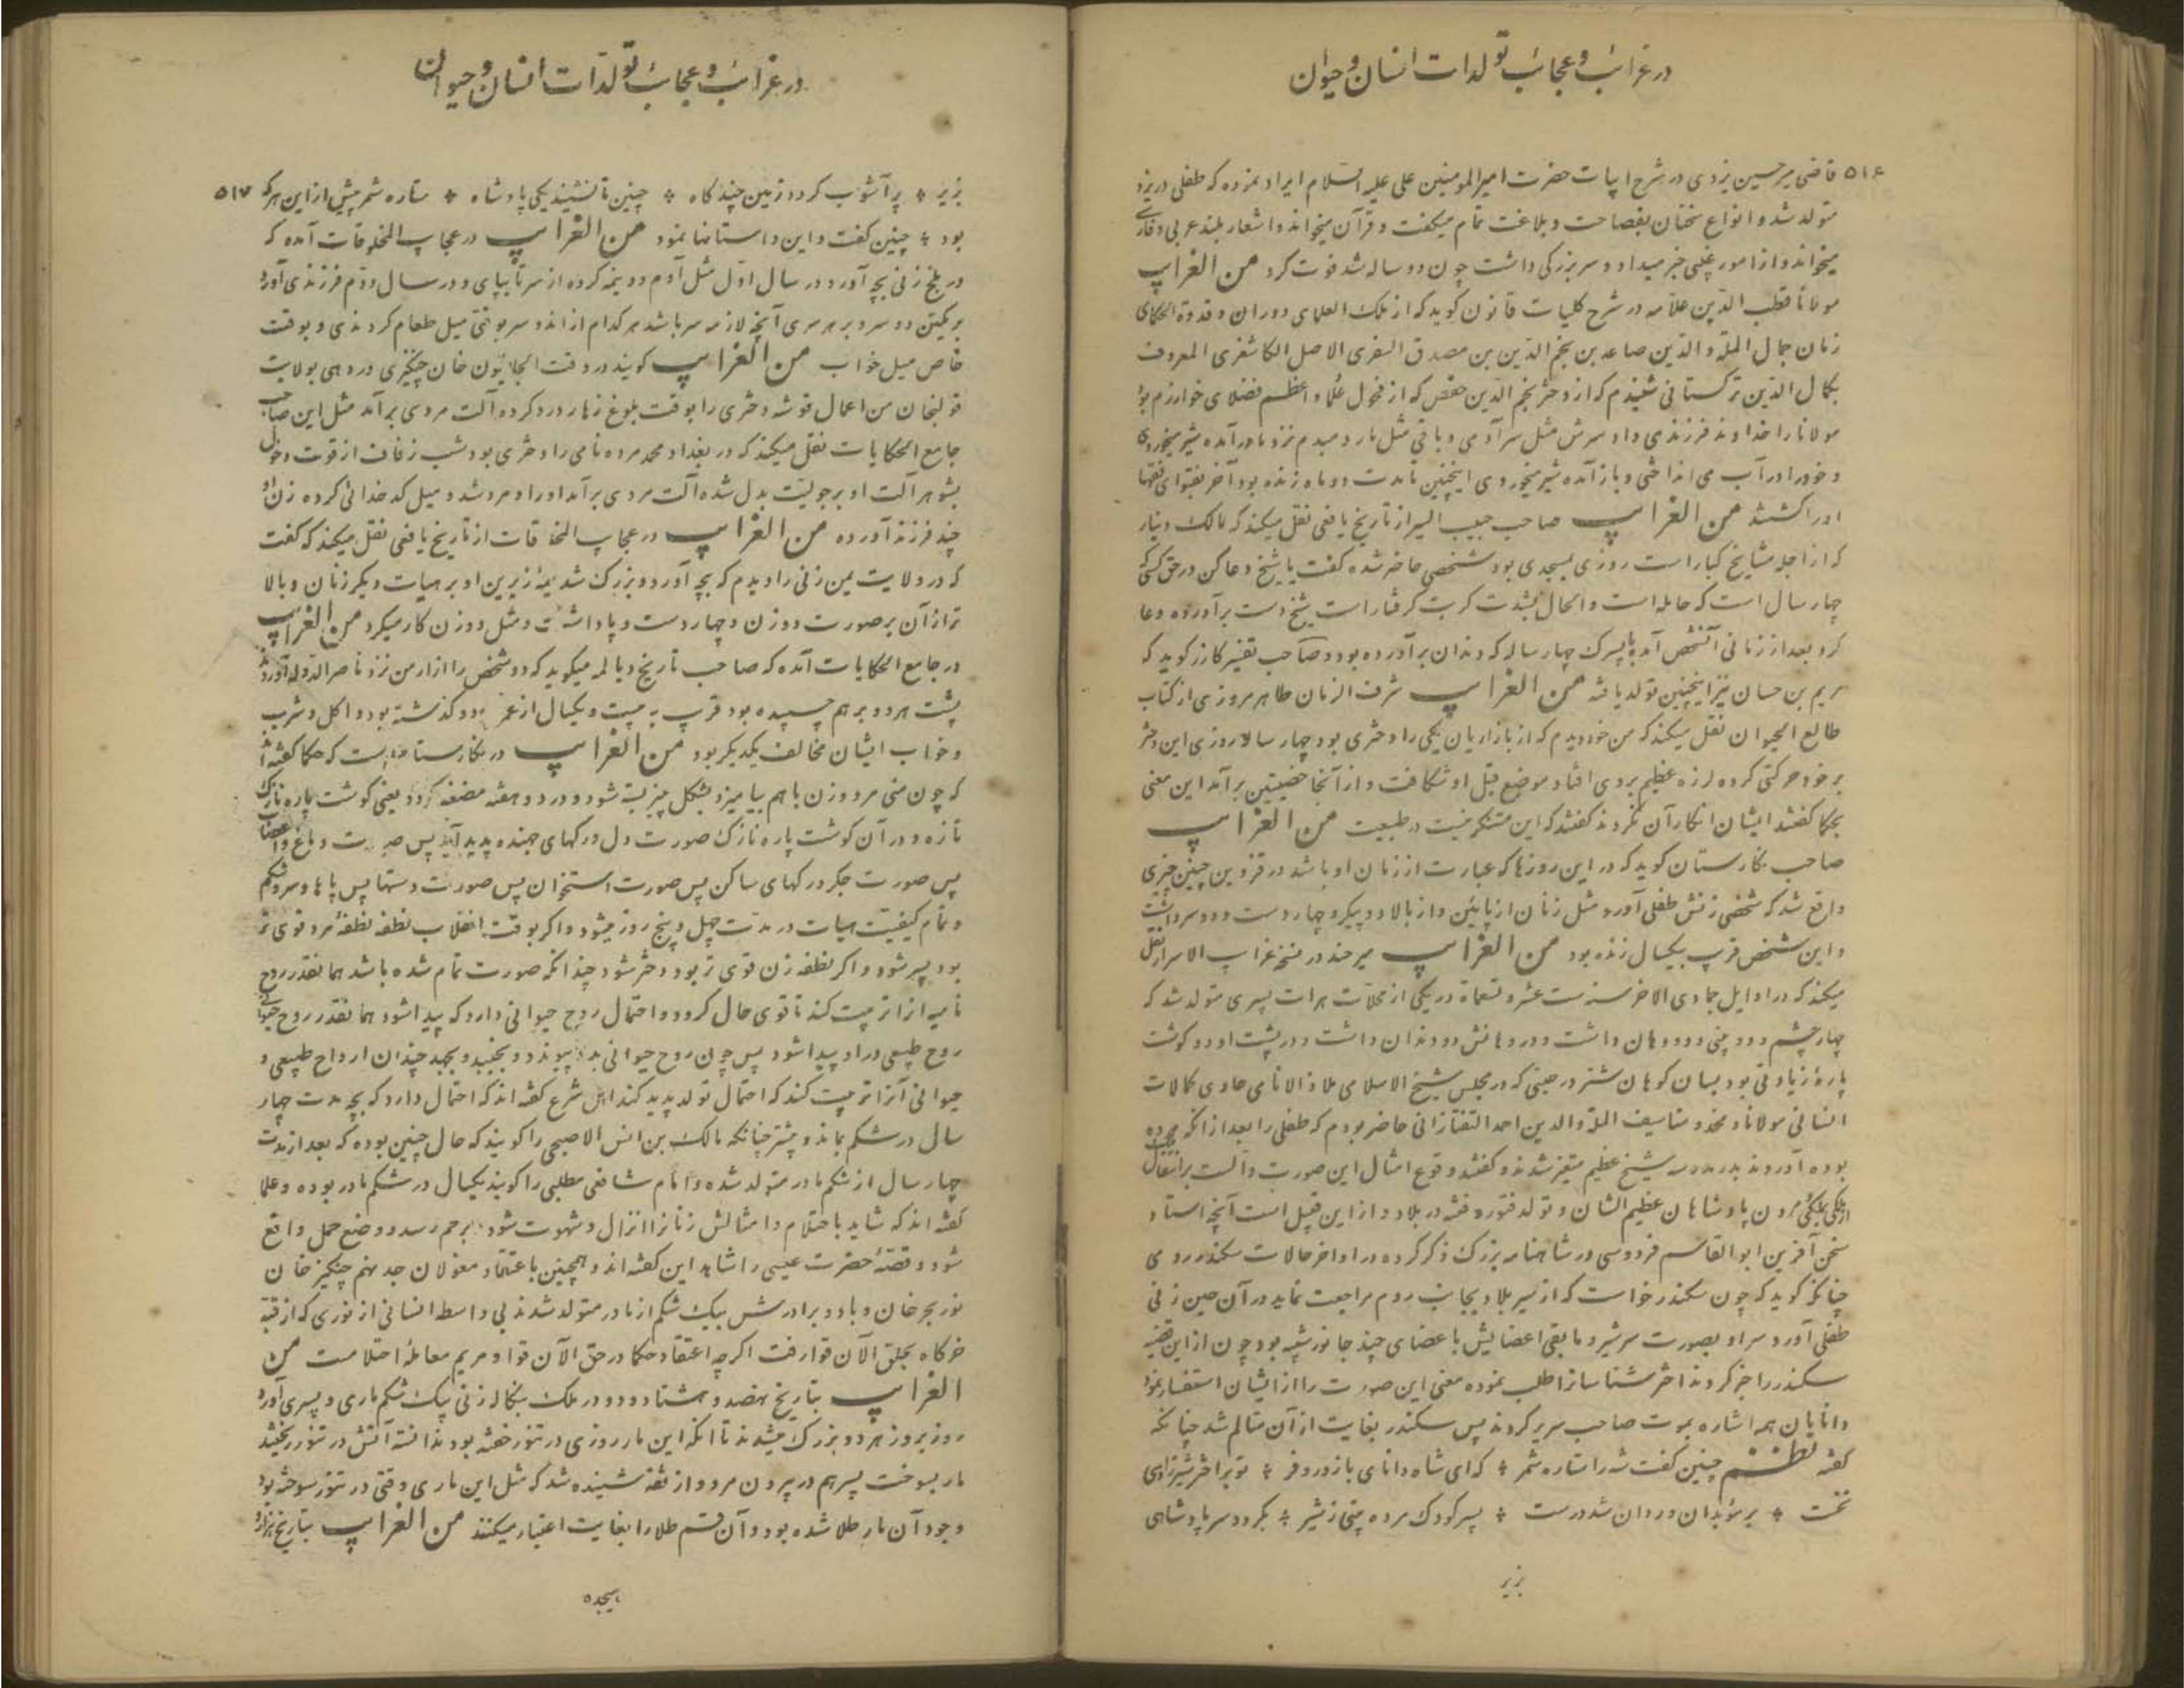 در غرائب و عجائب تولدات انسان و حیوان
۵۱۶ قاضی میر حسین یزدی در شرح ابیات حضرت امیر المومنین علی علیه السلام ایراد نموده که طفلی در یزد
متولد شد و انواع سخنان بفصاحت و بلاغت تمام میکفت و قرآن میخواند و اشعار بلند عربی و فارسی
میخواند و از امور غیبی خبر میداد و سر بزرکی داشت چون دو ساله شد فوت کرد من الغرایب
مولانا قطب الدین علامه در شرح کلیات قانون کوید که از ملک العلمای دوران و قدوة الحکمای
زمان جمال الملة و الدین صاعد بن نجم الدین بن مصدق السغری الاصل الکاشغری المعروف
بکمال الدین ترکستانی شنیدم که از دختر نجم الدین حفص که از فحول علما و اعظم فضلای خوارزم بود
مولانا را خداوند فرزندی داد سرش مثل سر آدمی و باقی مثل مار و مبدم نزد مادر آمده شیر میخوردی
و خود را در آب می انداختی و باز آمده شیر میخوردی اینچنین تا مدت دو ماه زنده بود آخر بفتوای فقها
او را کشتند من الغرایب صاحب حبیب السیر از تاریخ یافعی نقل میکند که مالک دینار
که از اجله مشایخ کبار است روزی بمسجدی بود شخصی حاضر شده کفت یا شیخ دعا کن در حق کسی که
چهار سال است که حامله است و الحال بشدت کربت کرفتار است شیخ دست برآورده دعا
کرد بعد از زمانی آنشخص آمد با پسرک چهار ساله که دندان برآورده بود و صاحب تفسیر کازر کوید که
هریم بن حسان نیز اینچنین تولد یافته من الغرایب شرف الزمان طاهر مروزی از کتاب
طالع الحیوان نقل میکند که من خود دیدم که از بازاریان یکی را دختری بود چهار ساله روزی این دختر
بر خود حرکتی کرده لرزه عظیم بروی افتاد موضع قبل او شکافت و از آنجا خصیتین برآمد این معنی
بحکما کفتند ایشان انکار آن نکردند کفتند که این مستنکر نیست در طبیعت من الغرایب
صاحب نکارستان کوید که در این روزها که عبارت از زمان او باشد در قزوین چنین چیزی
واقع شد که شخصی زنش طفلی آورد مثل زنان از پائین و از بالا دو پیکر و چهار دست و دو سر داشت
و این شخص قرب بیکسال زنده بود من الغرایب میر خند در نسخه غرایب الاسرار نقل
میکند که در اوایل جمادی الاخر سنه ست عشر و تسعمائة در یکی از محلات هرات پسری متولد شد که
چهار چشم و دو بینی و دو دهان داشت و در دهانش دو دندان داشت و در پشت او دو کوشت
پارۀ زیادتی بود بسان کوهان شتر در حینی که در مجلس شیخ الاسلامی ملاذ الانامی حاوی کمالات
انسانی مولانا و مخدومنا سیف الملة و الدین احمد التفتازانی حاضر بودم که طفلی را بعد از آنکه مرده
بوده آوردند شیخ عظیم متغیر شدند و کفتند وقوع امثال این صورت دالست بر انتقال
از ملکی بملکی مردن پادشاهان عظیم الشان و تولد فتور و فتنه در بلاد و از این قبیل است آنچه استاد
سخن آفرین ابو القاسم فردوسی در شاهنامه بزرک ذکر کرده در اواخر حالات سکندر رومی
چنانکه کوید که چون سکندر خواست که از سیر بلاد بجانب روم مراجعت نماید در آن حین زنی
طفلی آورد سر او بصورت سر شیر و مابقی اعضایش باعضای چند جانور شبیه بود چون از این قضیه
سکندر را خبر کردند اختر شناسانرا طلب نموده معنی این صورت را از ایشان استفسار نمود
دانایان همه اشاره بموت صاحب سریر کردند پس سکندر بغایت از آن متالم شد چنانکه
کفته نظم چنین کفت شه را ستاره شمر * که ای شاه دانای با زور و فر * تو بر اختر شیر زادی
نخست * بر موبدان و ردان شد درست * سر کودک مرده بینی ز شیر * بکردد سر پادشاهی
بزیر
در غرائب و عجائب تولدات انسان و حیوان
بزیر * پر آشوب کردد زمین چند کاه * چنین تا نشیند یکی پادشاه * ستاره شمر پیش از این هر که ۵۱۷
بود * چنین کفت و این داستانها نمود من الغرایب در عجایب المخلوقات آمده که
در بلخ زنی بچه آورد در سال اول مثل آدم دو نیمه کرده از سر تا بپای و در سال دوم فرزندی آورد
بر یکتن دو سر و بر هر سری آنچه لازمه سر باشد هر کدام از اندو سر بوقتی میل طعام کردندی و بوقت
خاص میل خواب من الغرایب کویند در وقت الجایتون خان چنکیزی در دهی بولایت
قولنجان من اعمال قوشه دختری را بوقت بلوغ زهار درد کرده آلت مردی برآمد مثل این صاحب
جامع الحکایات نقل میکند که در بغداد محمد مرده نامی را دختری بود شب زفاف از قوت دخول
بشوهر آلت او برجولیت بدل شده آلت مردی برآمد او را و مرد شد و میل کدخدائی کرده زن او
چند فرزند آورده من الغرایب در عجایب المخلوقات از تاریخ یافعی نقل میکند که کفت
که در ولایت یمن زنی را دیدم که بچه آورد و بزرک شد نیمۀ زیرین او بر هیات دیکر زنان و بالا
تر از آن بر صورت دو زن و چهار دست و پا داشت و مثل دو زن کار میکرد من الغرایب
در جامع الحکایات آمده که صاحب تاریخ دیالمه میکوید که دو شخص را از ارمن نزد ناصر الدوله آوردند
پشت هر دو بر هم چسپیده بود قرب به بیست و یکسال از عمر کذشته بود و اکل و شرب
و خواب ایشان مخالف یکدیکر بود من الغرایب در نکارستان است که حکما کفته اند
که چون منی مرد و زن با هم بیامیزد بشکل پنیر بسته شود و در دو هفته مضغه کردد یعنی کوشت پاره نازک
تازه و در آن کوشت پاره نازک صورت دل و رکهای جهنده پدید آید پس صورت دماغ و اعضا
پس صورت جکر و رکهای ساکن پس صورت استخوان پس صورت دستها پس پاها و سر و شکم
و تمام کیفیت هیات در مدت چهل و پنج روز میشود و اکر بوقت انقلاب نطفه نطفۀ مرد قوی تر
بود پسر شود و اکر نطفه زن قوی تر بود دختر شود چندانکه صورت تمام شده باشد همانقدر روح
نامیه انرا تربیت کند تا قوی حال کردد و احتمال روح حیوانی دارد که پیدا شود همانقدر روح حیوانی
روح طبیعی در او پیدا شود پس چون روح حیوانی بدو پیوندد و بجنبد و بجهد چندان ارواح طبیعی و
حیوانی آنرا تربیت کند که احتمال تولد پدید کند اهل شرع کفته اند که احتمال دارد که بچه مدت چهار
سال در شکم بماند و بیشتر چنانکه مالک بن انس الاصبحی را کویند که حال چنین بوده که بعد از مدت
چهار سال از شکم مادر متولد شده و امام شافعی مطلبی را کویند یکسال در شکم مادر بوده و علما
کفته اند که شاید باحتلام و امثالش زنانرا انزال و شهوت شود برحم رسد و وضع حمل واقع
شود و قصۀ حضرت عیسی را شاهد این کفته اند و همچنین باعتقاد مغولان جد نهم چنکیز خان
نوربجر خان و با دو برادرش بیک شکم از مادر متولد شدند بی واسطۀ انسانی از نوری که از قبۀ
خرکاه بحلق الآن قوا رفت اکرچه اعتقاد حکما در حق الآن قوا و مریم معاملۀ احتلامست من
الغرایب بتاریخ نهصد و هشتاد و دو در ملک بنکاله زنی بیک شکم ماری و پسری آورد
روز بروز هر دو بزرک میشدند تا آنکه این مار روزی در تنور خفته بود ندانسته آتش در تنور ریختند
مار بسوخت پسر هم در بیرون مرد و از ثقه شنیده شد که مثل این ماری وقتی در تنور سوخته بود
وجود آن مار طلا شده بود و آن قسم طلا را بغایت اعتبار میکنند من الغرایب بتاریخ هزار و
هیجده